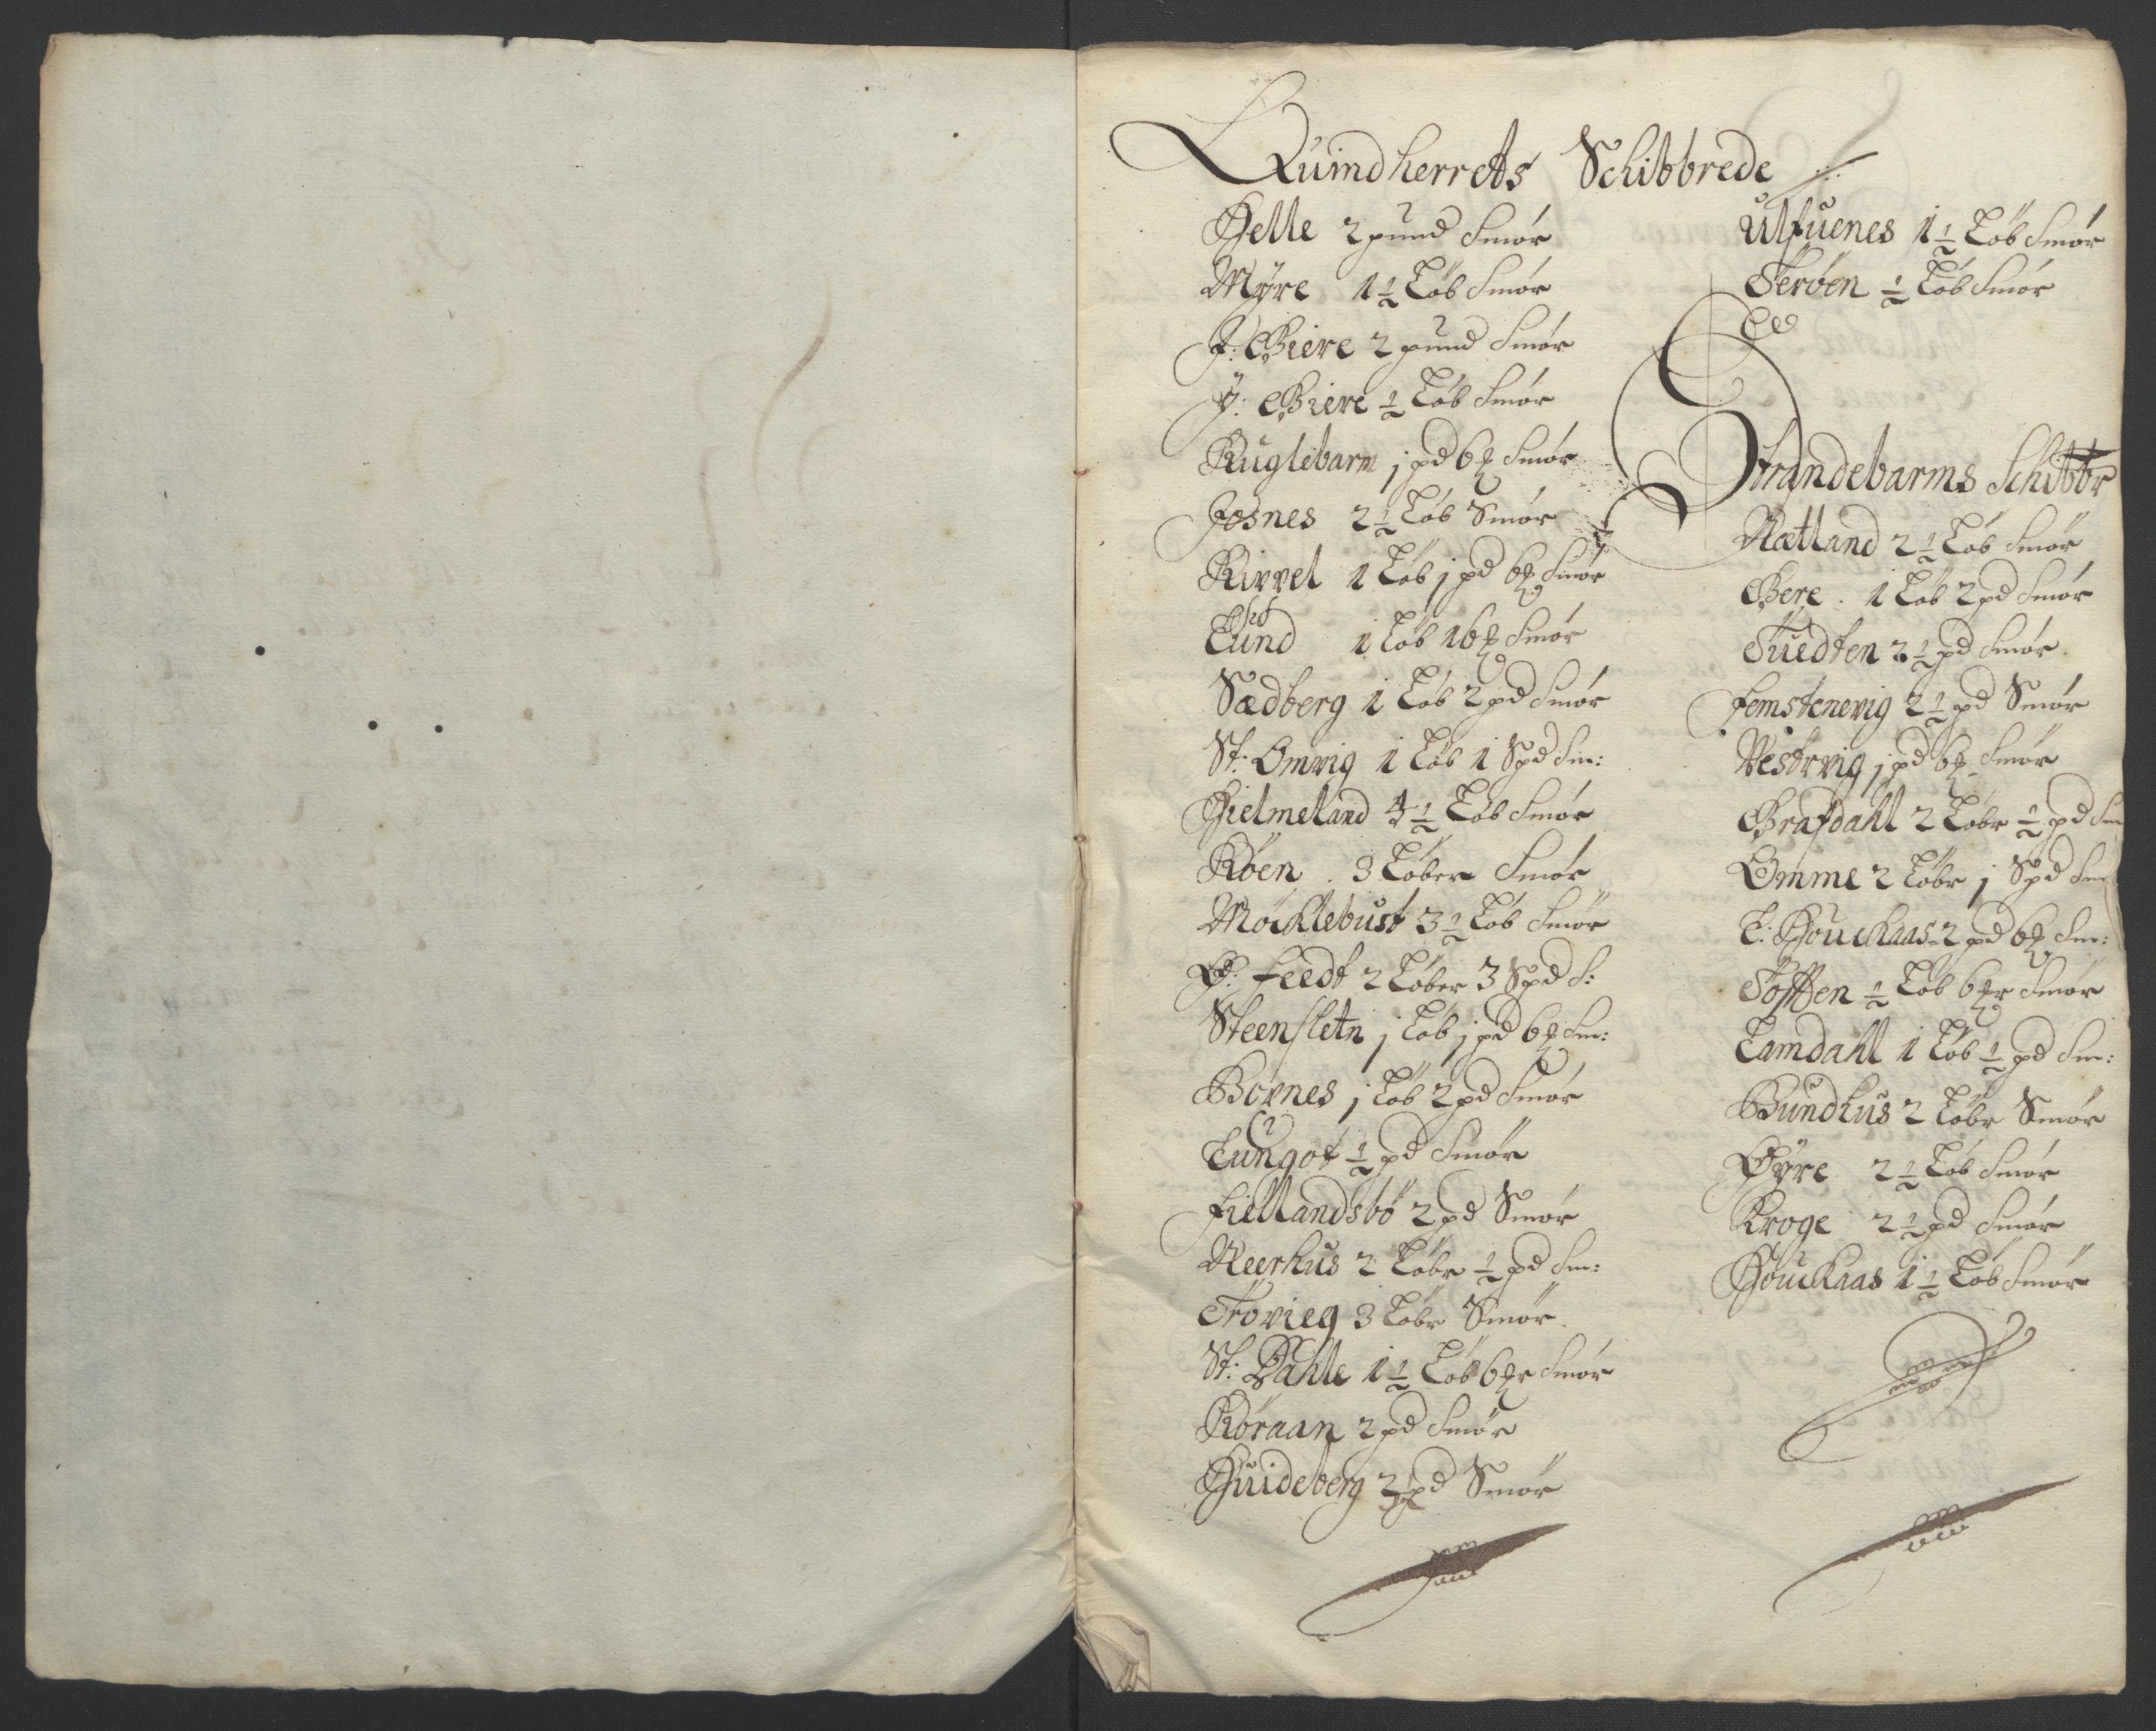 Quindherrets Schibbrede
Helle 2 pund Smør
Myre 1½ Løb Smør
J: Giere 2 pund Smør
Y: Giere ½ Løb Smør
Kuglebarm j pd 6 Smør
Josnes 2½ Løb Smør
Kirvel 1 Løb j pd 6 Smør
Lund 1 Løb 16 Smør
Sædberg 1 Løb 2 pd Smør
St: Omvig 1 Løb 1 Spd Sm:
Hielmeland 4½ Løb Smør
Røen . 3 Løber Smør
Møcklebust 3½ Løb Smør
Ø: feedt 2 Løber 3 Spd S:
Steensletn j Løb j pd 6 Sm:
Bornes j Løb 2 pd Smør
Lungot ½ pd Smør
fiellandsbø 2 pd Smør
Neerhus 2 Løbr ½ pd Sm:
Trovieg 3 Løbr Smør
St: Dahle 1½ Løb 6 Smør
Røraan 2 pd Smør
Huideberg 2 pd Smør
Ulfuenes 1½ Løb Smør
Terøen ½ Løb Smør
Strandebarms Schibbr
Nætland 2½ Løb Smør
Gere . 1 Løb 2 pd Smør
Tuedten 2½ pd Smør
femstenevig 2½ pd Smør
Vestrvig j pd 6 Smør
Grafdahl 2 Løbr ½ pd Sm
Omme 2 Løbr j Spd Sm
L: Houckaas 2 pd 6 Sm:
Tofften ½ Løb 6 Smør
Lamdahl 1 Løb ½ pd Sm:
Bundhus 2 Løbr Smør
Øyre 2½ Løb Smør
Kroge 2½ pd Smør
Houckaas 1½ Løb Smør